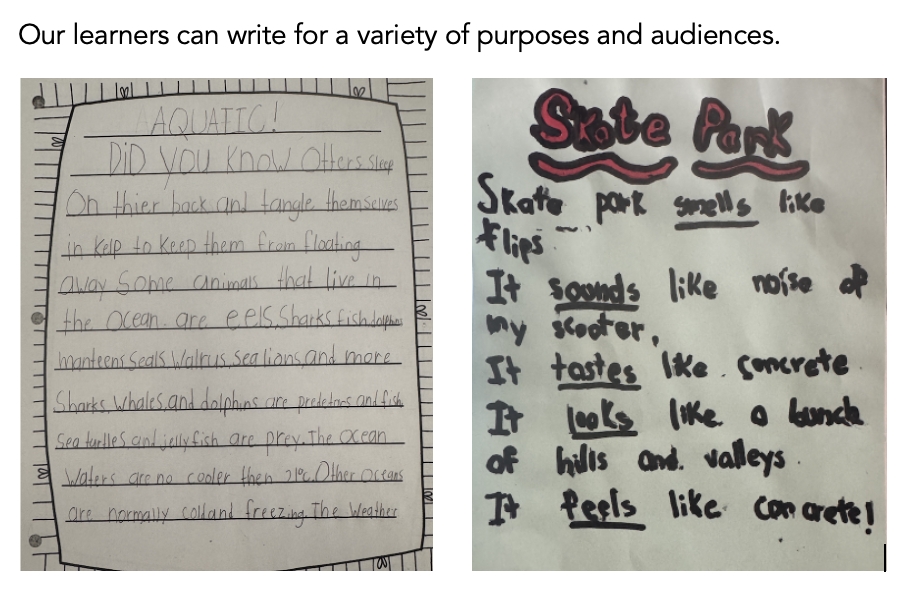 Our learners can write for a variety of purposes and audiences.
AQUATIC!
DiD YOU Know Otters sleep
On thier back and tangle themselves
in Kelp to Keep them from floating
away Some animals that live in
the Ocean are eels, Sharks, fish, dolphins
manteens, Seals, Walrus, Sea lions, and more
Sharks, Whales, and dolphins are predetors and fish
Sea turtles and jelly fish are prey. The Ocean
Waters are no cooler then 21°c. Other Oceans
are normally cold and freezing. The Weather
Skate Park
Skate park smells like
flips
It sounds like noise of
my scooter,
It tastes like concrete
It looks like a bunch
of hills and valleys.
It feels like concrete!